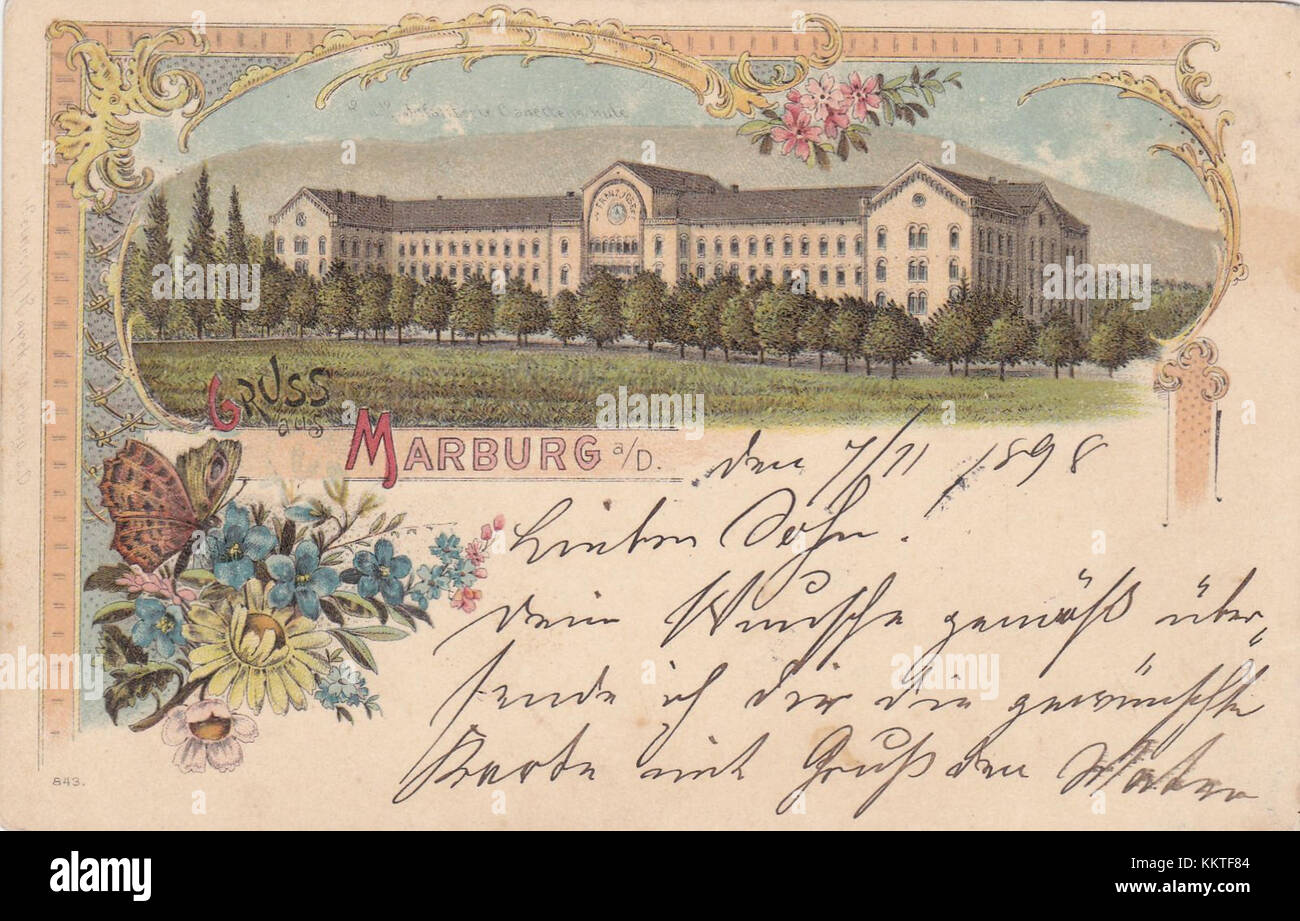 K. K. Infanterie Cadettenschule
FRANZ JOSEF
Gruss
aus
MARBURG a/D.
den 7/11 1898
Lieber Sohn!
Dein Wunsche gemäß über„
sende ich dir die gewünschte
Karte mit Gruß den Vater
843.
alamy
alamy
Image ID: KKTF84
www.alamy.com